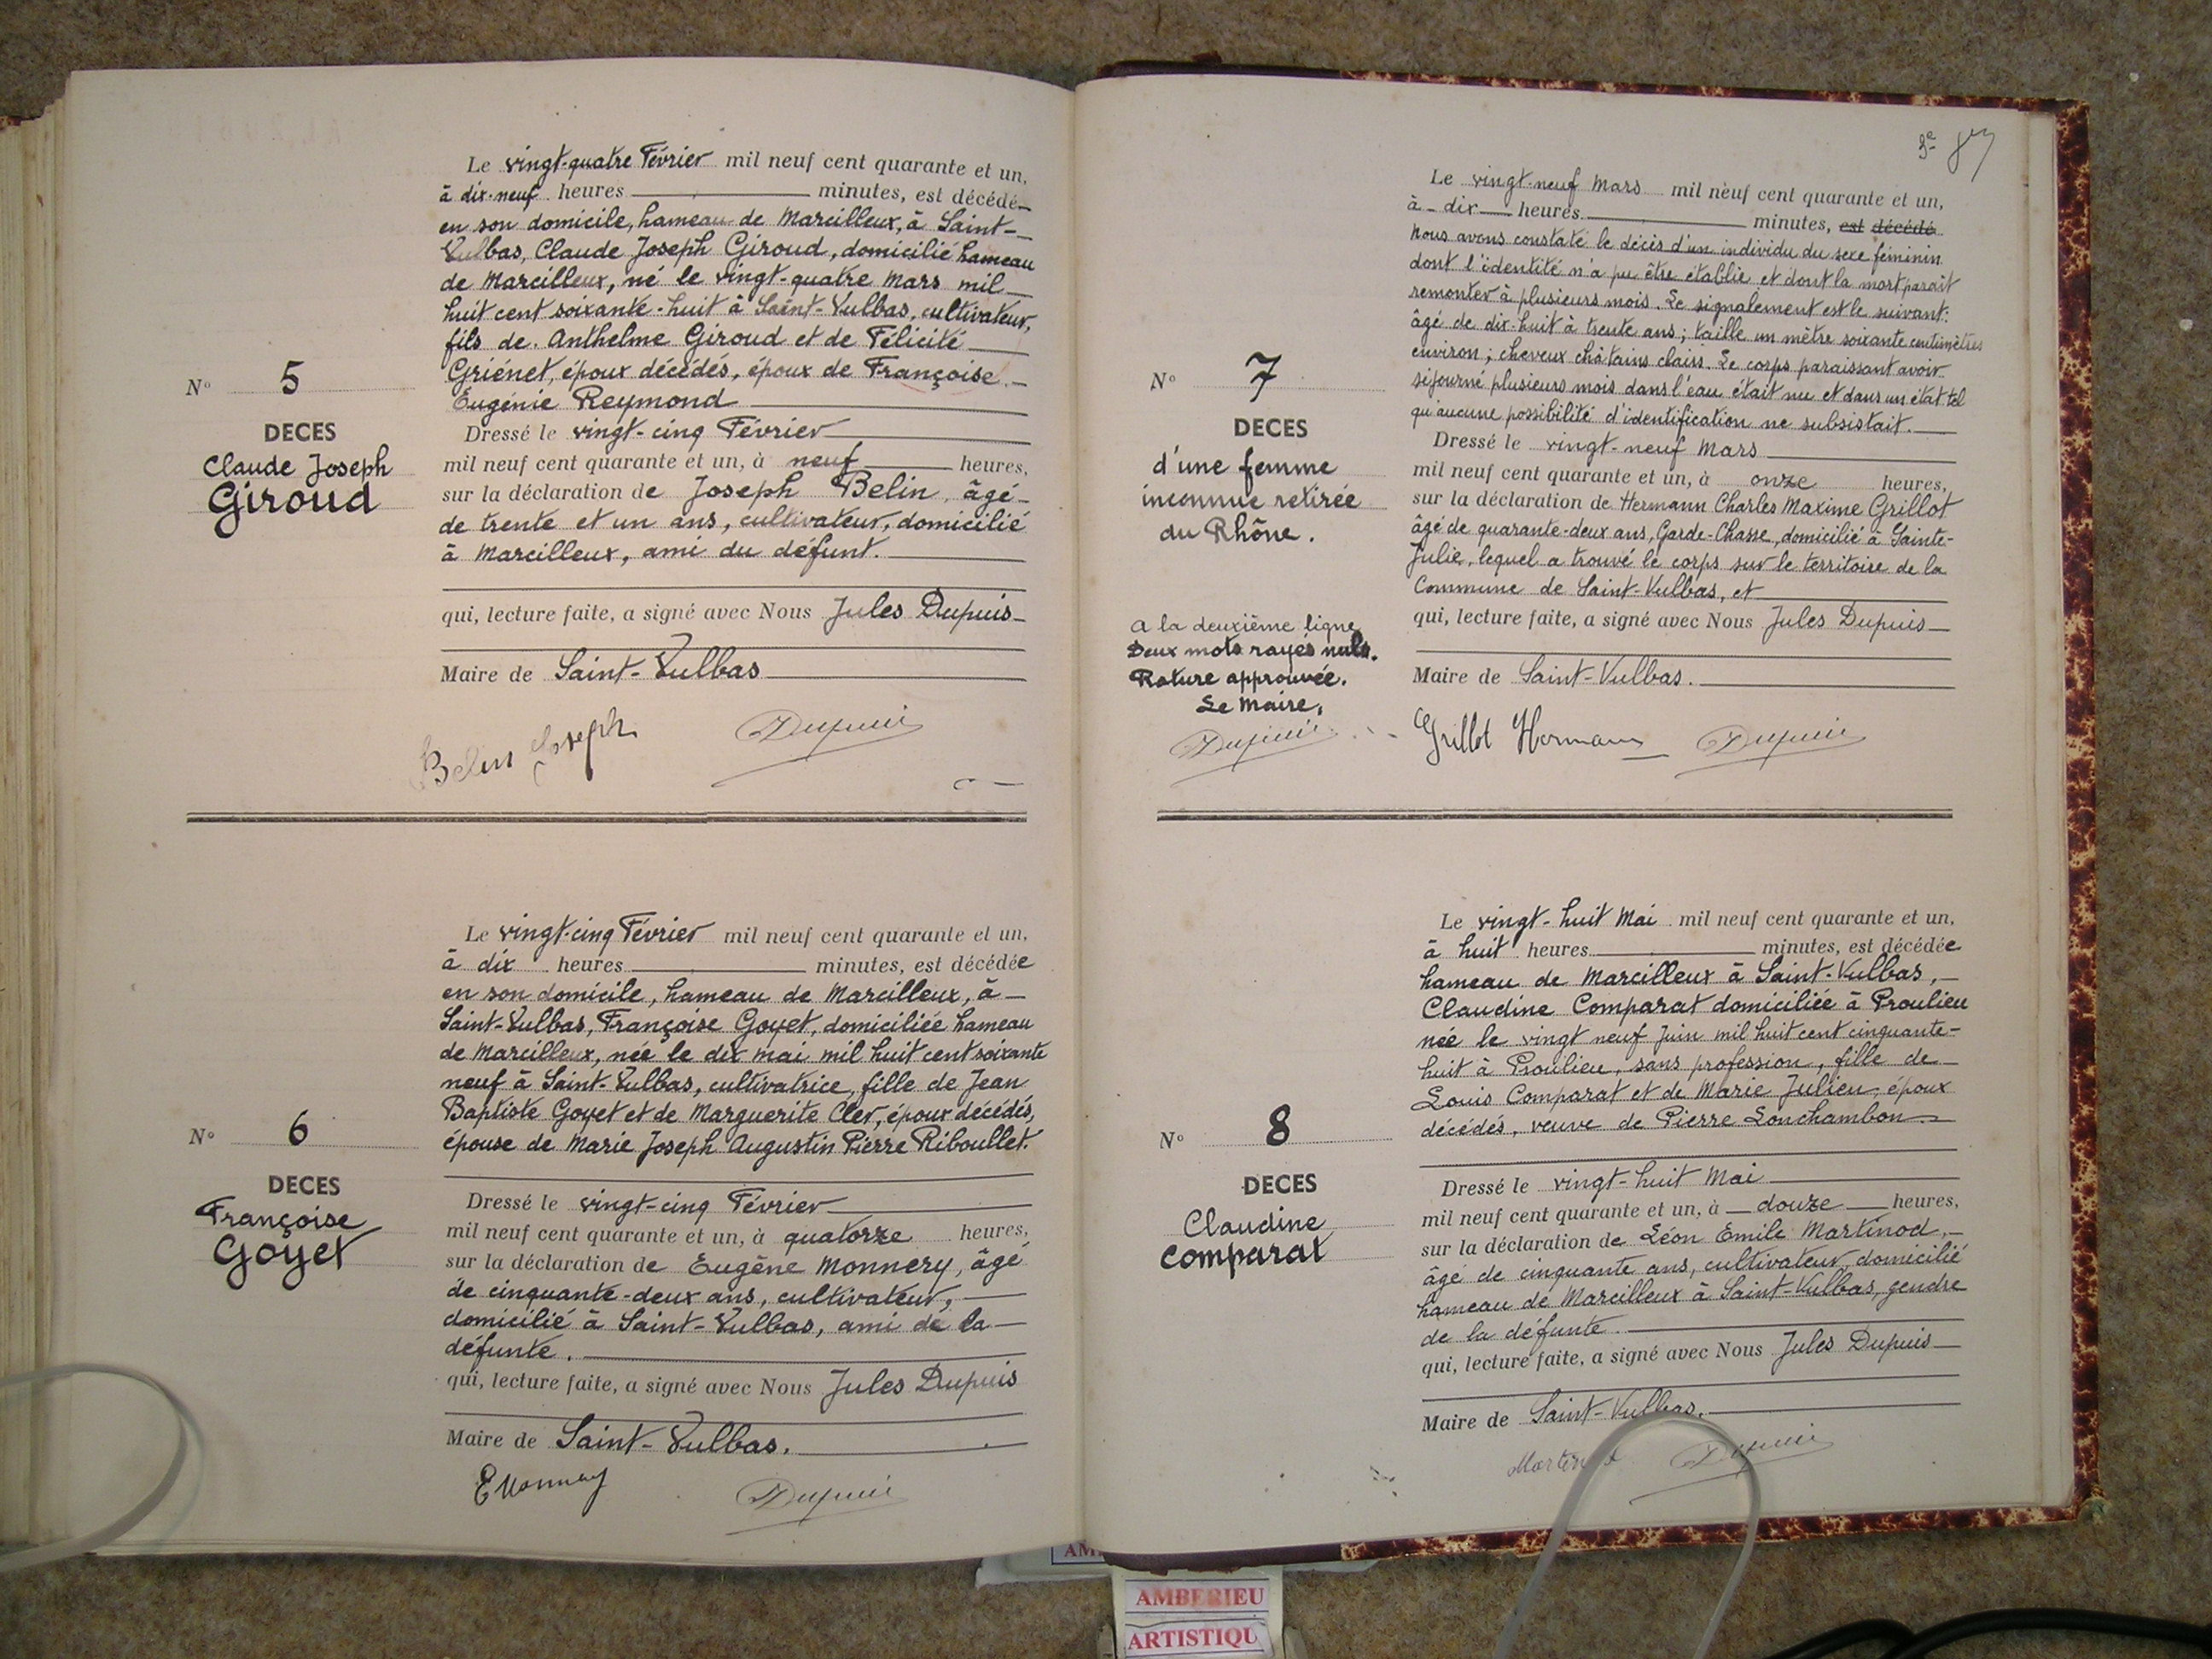 Le vingt-quatre Février mil neuf cent quarante et un,
à dix-neuf heures minutes, est décédé
en son domicile, hameau de Marcilleux, à Saint-
Vulbas, Claude Joseph Giroud, domicilié hameau
de Marcilleux, né le vingt-quatre Mars mil
huit cent soixante-huit à Saint-Vulbas, cultivateur,
fils de Anthelme Giroud et de Félicité
Griénet, époux décédés, époux de Françoise
Eugénie Reymond
N° 5
DECES
Claude Joseph
Giroud
Dressé le vingt-cinq Février
mil neuf cent quarante et un, à neuf heures,
sur la déclaration de Joseph Belin, âgé
de trente et un ans, cultivateur, domicilié
à Marcilleux, ami du défunt.
qui, lecture faite, a signé avec Nous Jules Dupuis
Maire de Saint-Vulbas
Belin Joseph Dupuis
Le vingt-cinq Février mil neuf cent quarante et un,
à dix heures minutes, est décédée
en son domicile, hameau de Marcilleux, à
Saint-Vulbas, Françoise Goyet, domiciliée hameau
de Marcilleux, née le dix mai mil huit cent soixante
neuf à Saint-Vulbas, cultivatrice, fille de Jean
Baptiste Goyet et de Marguerite Cler, époux décédés,
épouse de Marie Joseph Augustin Pierre Riboullet.
N° 6
DECES
Françoise
Goyet
Dressé le vingt-cinq Février
mil neuf cent quarante et un, à quatorze heures,
sur la déclaration de Eugène Monnery, âgé
de cinquante-deux ans, cultivateur,
domicilié à Saint-Vulbas, ami de la
défunte.
qui, lecture faite, a signé avec Nous Jules Dupuis
Maire de Saint-Vulbas.
E Monnery Dupuis
87
Le vingt-neuf Mars mil neuf cent quarante et un,
à dix heures minutes, est décédé
Nous avons constaté le décès d'un individu du sexe féminin
dont l'identité n'a pu être établie et dont la mort paraît
remonter à plusieurs mois. Le signalement est le suivant:
âgé de dix-huit à trente ans; taille un mètre soixante centimètres
environ; cheveux châtains clairs. Le corps paraissant avoir
séjourné plusieurs mois dans l'eau était nu et dans un état tel
qu'aucune possibilité d'identification ne subsistait.
N° 7
DECES
d'une femme
inconnue retirée
du Rhône.
Dressé le vingt-neuf Mars
mil neuf cent quarante et un, à onze heures,
sur la déclaration de Hermann Charles Maxime Grillot
âgé de quarante-deux ans, Garde-Chasse, domicilié à Sainte-
Julie, lequel a trouvé le corps sur le territoire de la
Commune de Saint-Vulbas, et
qui, lecture faite, a signé avec Nous Jules Dupuis
Maire de Saint-Vulbas.
A la deuxième ligne
Deux mots rayés nuls.
Rature approuvée.
Le Maire,
Dupuis
Grillot Hermann Dupuis
Le vingt-huit Mai mil neuf cent quarante et un,
à huit heures minutes, est décédée
hameau de Marcilleux à Saint-Vulbas,
Claudine Comparat domiciliée à Proulieu
née le vingt neuf Juin mil huit cent cinquante-
huit à Proulieu, sans profession, fille de
Louis Comparat et de Marie Julien, époux
décédés, veuve de Pierre Lonchambon.
N° 8
DECES
Claudine
Comparat
Dressé le vingt-huit Mai
mil neuf cent quarante et un, à douze heures,
sur la déclaration de Léon Emile Martinod,
âgé de cinquante ans, cultivateur, domicilié
hameau de Marcilleux à Saint-Vulbas, gendre
de la défunte.
qui, lecture faite, a signé avec Nous Jules Dupuis
Maire de Saint-Vulbas.
Martinod Dupuis
AMBERIEU
ARTISTIQU